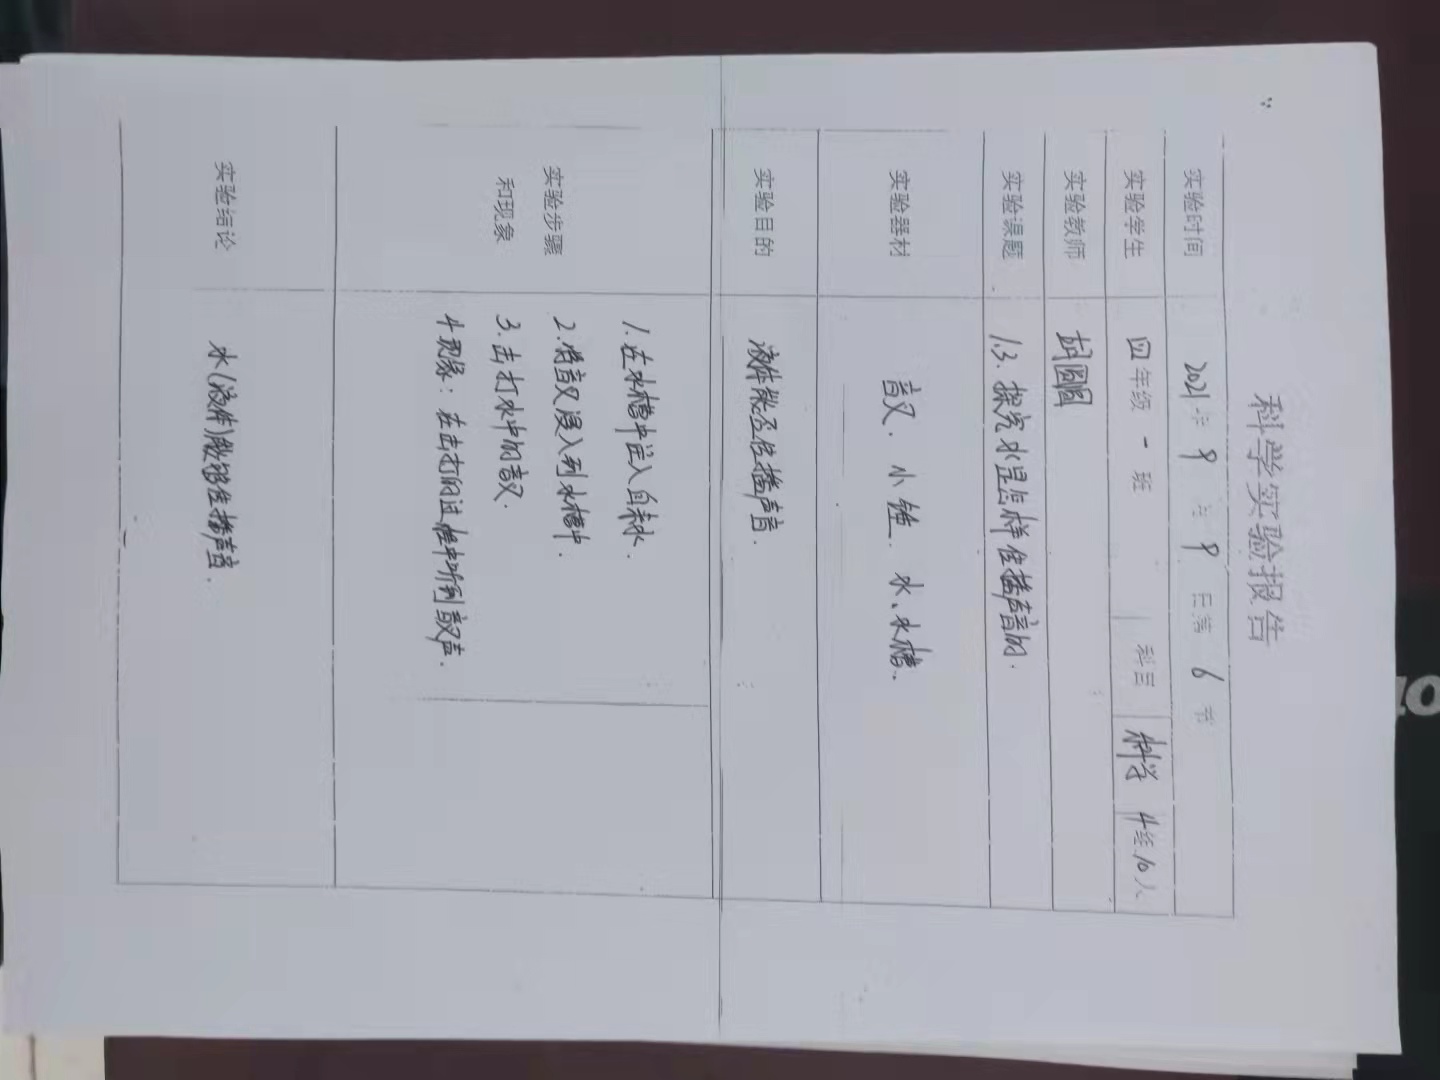 科学实验报告
实验时间 2021年9月9日第6节
实验学生 四年级一班 科目 科学 4组10人
实验教师 胡圆圆
实验课题 1.3.探究水是怎样传播声音的.
实验器材 音叉.小锤.水、水槽.
实验目的 液体能否传播声音.
实验步骤
和现象
1.在水槽中注入自来水.
2.将音叉浸入到水槽中.
3.击打水中的音叉.
4现象:在击打的过程中听到音叉声.
实验结论 水(液体)能够传播声音.